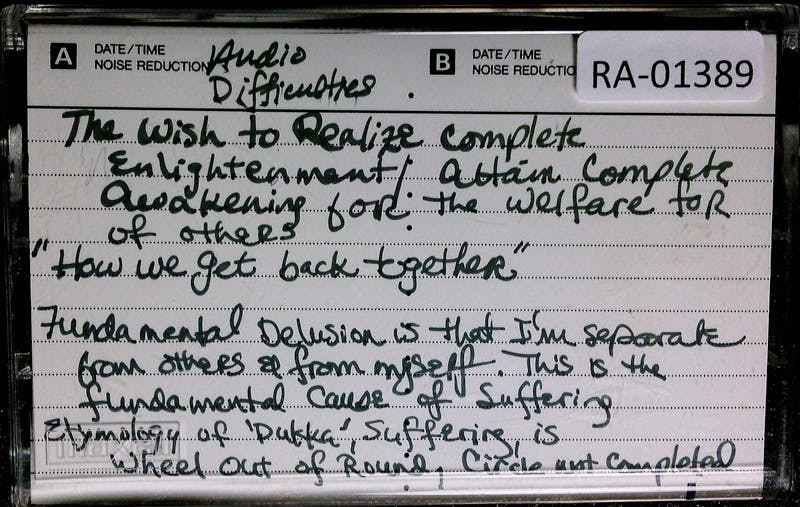 A DATE/TIME NOISE REDUCTION Audio Difficulties.
B DATE/TIME NOISE REDUCTIO
RA-01389
The wish to Realize complete
Enlightenment / attain Complete
Awakening for: the welfare foR
of others
"How we get back together"
Fundamental Delusion is that I'm separate
from others & from myself. This is the
fundamental Cause of Suffering
Etymology of 'Dukka', Suffering, is
Wheel Out of Round, Circle not Completed
maxell